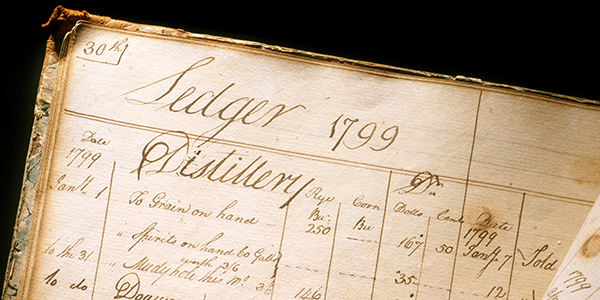 30th
Ledger 1799
Distillery
Date Rye Corn Dr. Dolls Cents Date
1799 Bu. Bu 1799
Jany. 1 To Grain on hand 250 167 50 Jany. 7 Sold
" Spirits on hand 60 Galls
worth 3/6 35 12
to the 31 " his No. 3 146
to do
1799